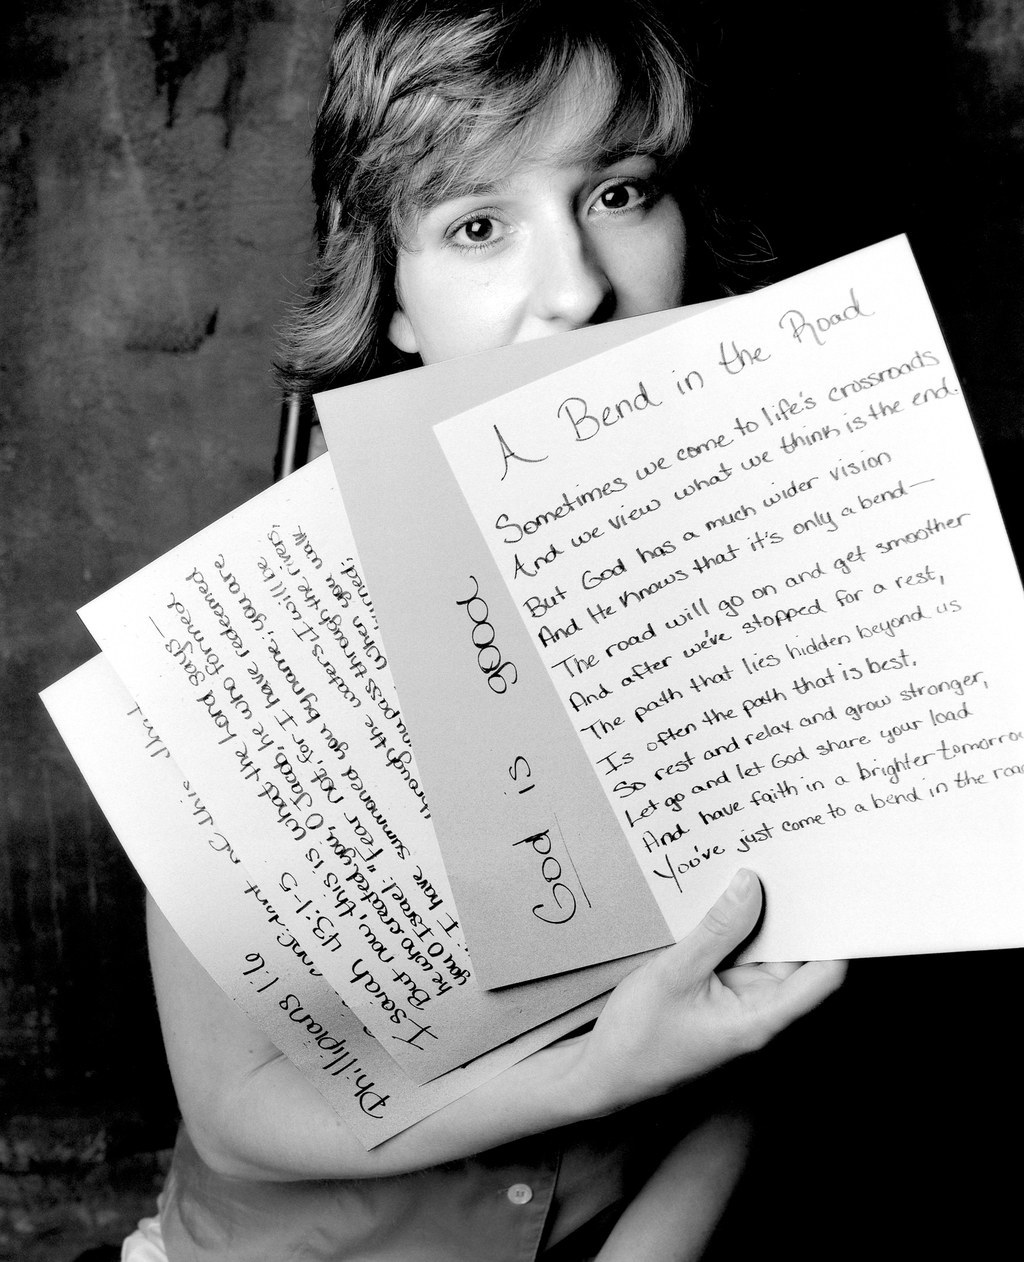 A Bend in the Road
Sometimes we come to life's crossroads
And we view what we think is the end.
But God has a much wider vision
And He Knows that it's only a bend—
The road will go on and get smoother
And after we've stopped for a rest,
The path that lies hidden beyond us
Is often the path that is best.
So rest and relax and grow stronger,
Let go and let God share your load
And have faith in a brighter tomorrow
You've just come to a bend in the road
God is good
Isaiah 43:1-5
But now, this is what the Lord says—
he who created you, O Jacob, he who formed
you O Israel: "Fear not, for I have redeemed
I have summoned you by name; you are
through the waters, I will be
you pass through the rivers,
When you walk
Phillipians 1:6